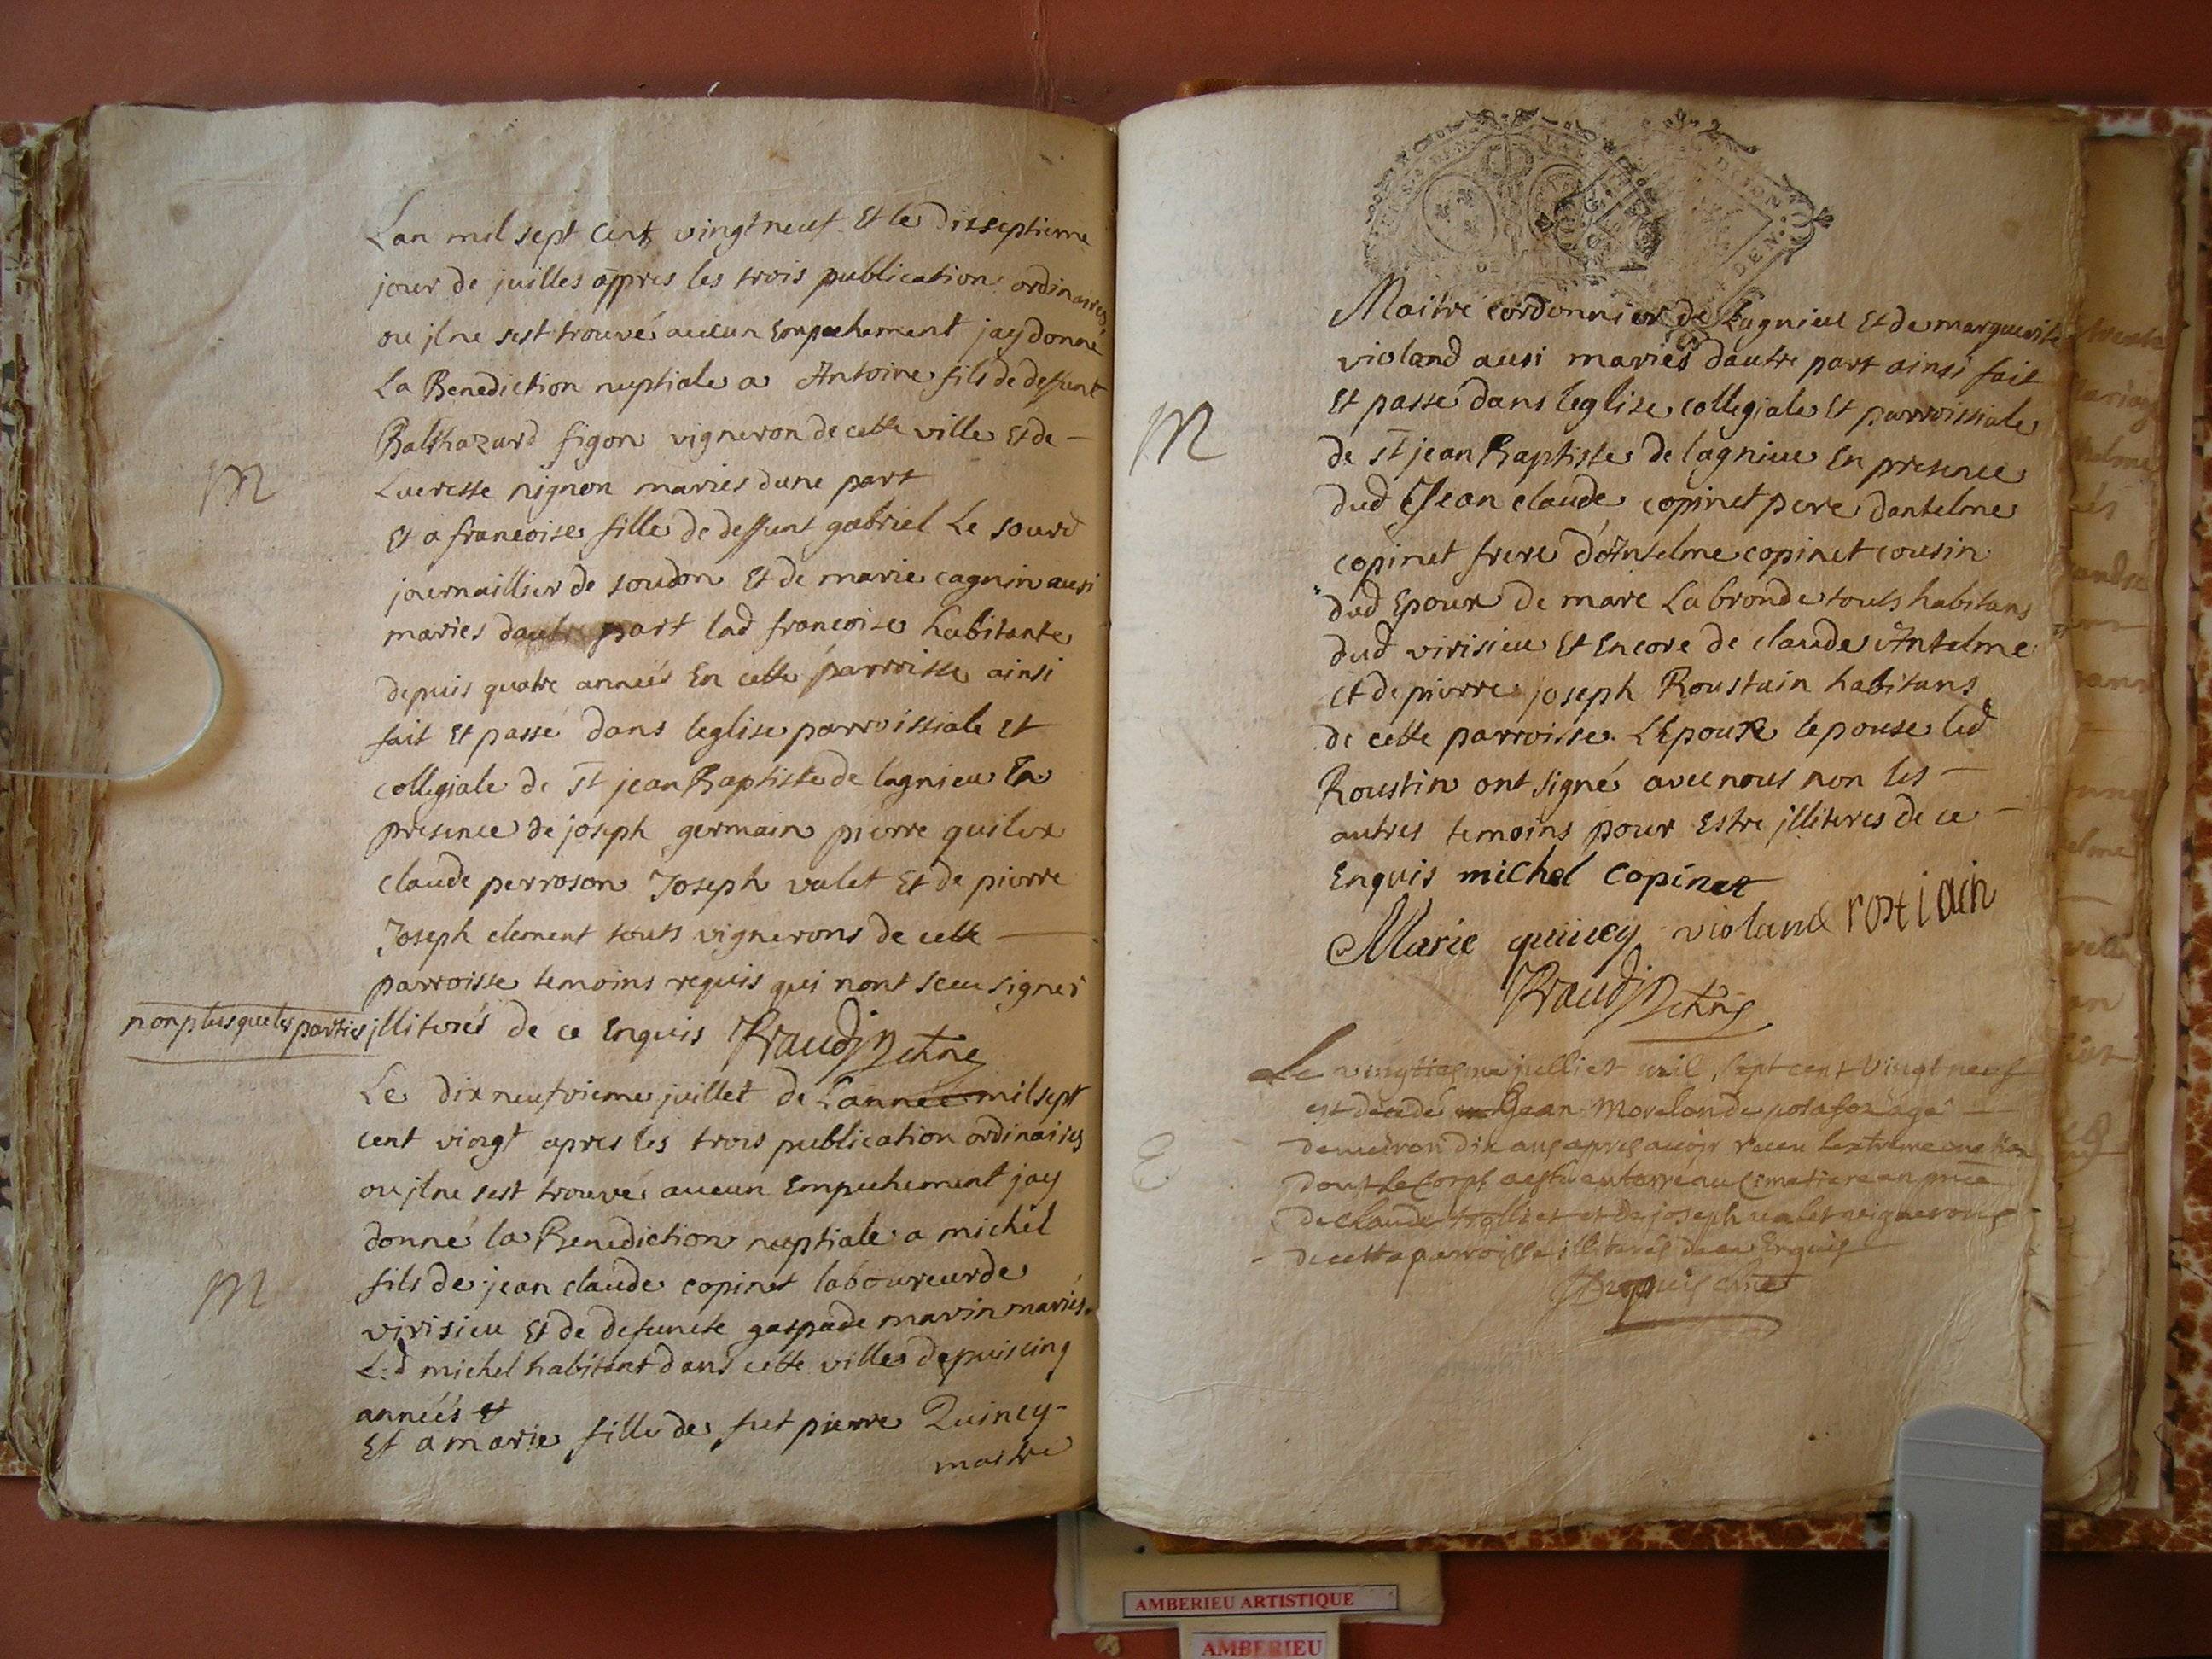 Lan mil sept cent vingt neuf Et le disseptieme
jour de juilles appres les trois publication ordinaires
ou jl ne sest trouvé aucun Empechement jay donné
La Benediction nuptiale a Antoine fils de deffunt
Balthazard figon vigneron de cette ville Et de —
Lucresse nignon mariés dune part
M
Et a francoise fille de deffunt gabriel Le sourd
journaillier de soudon Et de marie cagnin ausi
mariés dautre part lad francoise habitante
depuis quatre années En cette parroisse ainsi
fait Et passé dans leglise parroissiale Et
collegiale de St jean Baptiste de lagnieu En
presence de joseph germain pierre
claude perroson Joseph valet Et de pierre
Joseph clement touts vignerons de cette —
parroisse temoins requis qui nont sceu signer
non plus que les parties jlliterés de ce Enquis
Le dix neufvieme juillet de Lannée mil sept
cent vingt apres les trois publication ordinaires
ou jl ne sest trouvé aucun Empechement jay
donné la Benediction nuptiale a michel
fils de jean claude copinet laboureur de
M
virisieu Et de defuncte gaspade marin mariés
Led michel habitant dans cette ville depuis cinq
années et
Et a marie fille de fut pierre Quincy -
maitre
Maitre cordonnier de Lagnieu Et de marguerite
violand ausi mariés dautre part ainsi fait
Et passé dans leglise collegiale Et parroissiale
M
de St jean Baptiste de lagnieu En presence
dud Jean claude copinet pere dantelme
copinet frere d'Antelme copinet cousin
dud Epoux de marc Labronde touts habitans
dud virisieu Et Encore de claude Antelme
et de pierre joseph Roustain habitans
de cette parroisse. LEpoux lepouse led
Roustin ont signé avec nous non les —
autres temoins pour Estre jlliteres de ce —
Enquis michel Copinet
Marie quincy violand rostiain
Le vingtiesme julliet mil sept cent vingt neuf
est decedé Jean Morelon de age —
denviron dix ans apres avoir receu lextreme onction
dont le corps a esté enterré au Cimetiere en pnce
de Claude et de joseph valet vignerons
de cette parroisse illiterés de ce Enquis
AMBERIEU ARTISTIQUE
AMBERIEU